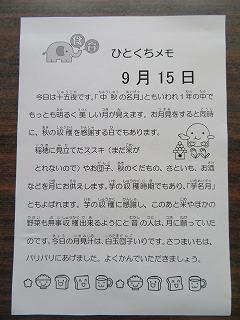 食育
ひとくちメモ
9月15日
今日は十五夜です。「中秋の名月」ともいわれ1年の中で
もっとも明るく美しい月が見えます。お月見をすると同時
に、秋の収穫を感謝する日でもあります。
稲穂に見立てたススキ(まだ米が
とれないので)やお団子、秋のくだもの、さといも、お酒
などを月にお供えします。芋の収穫時期でもあり、「芋名月」
ともよばれます。芋の収穫に感謝し、このあと米やほかの
野菜も無事収穫出来るようにと昔の人は、月に願っていた
のです。今日の月見汁は、白玉団子いりです。さつまいもは、
パリパリにあげました。よくかんでいただきましょう。